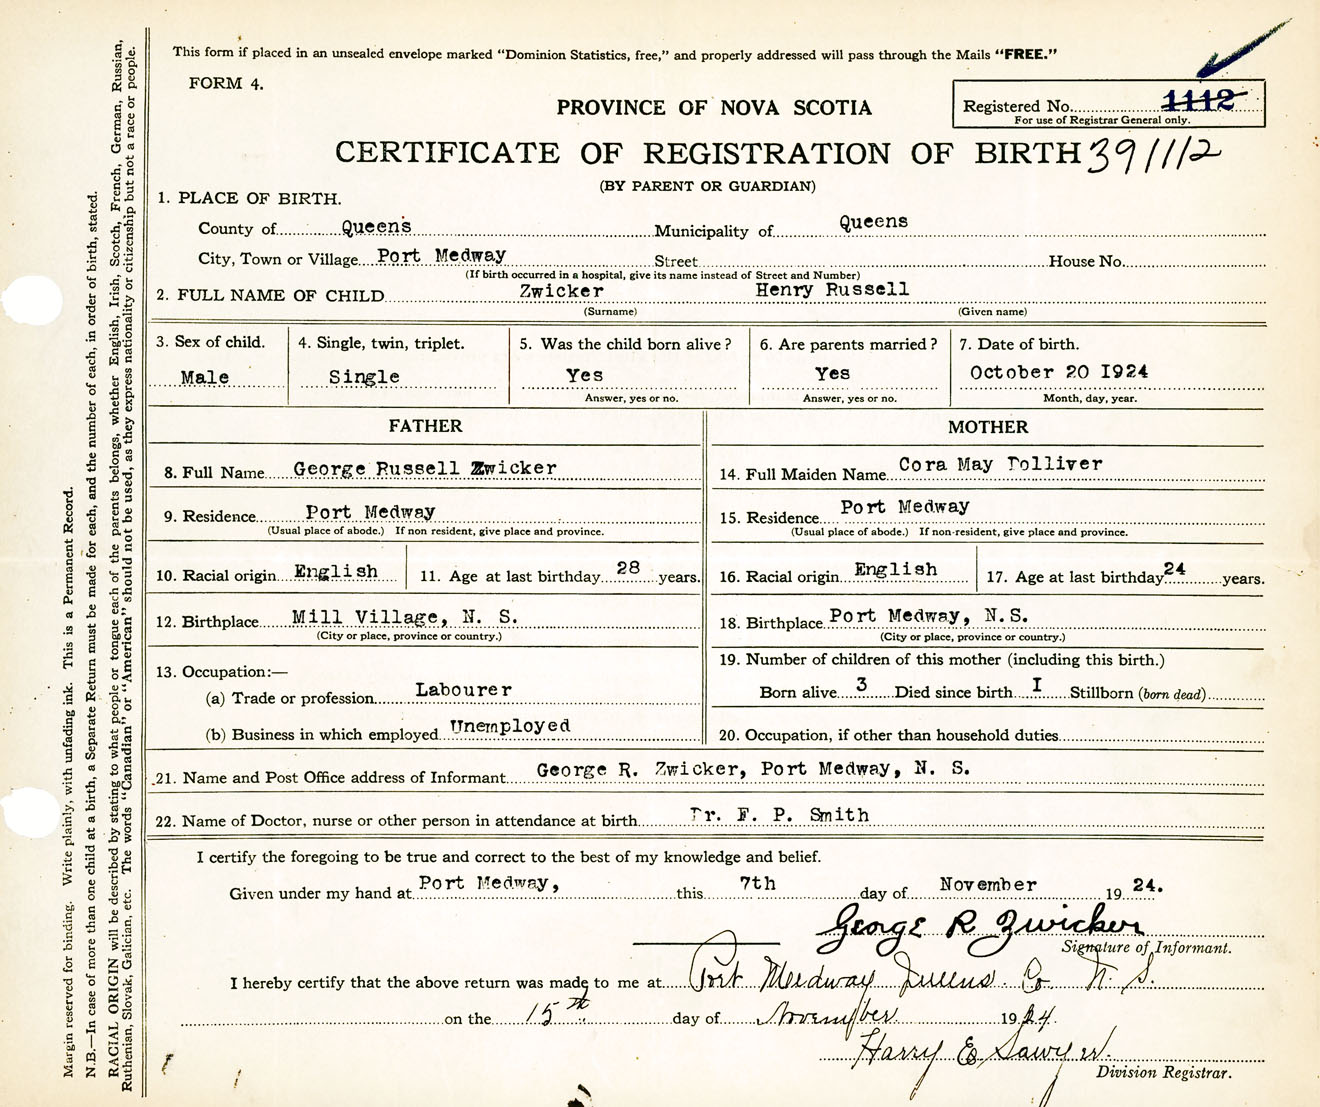 This form if placed in an unsealed envelope marked “Dominion Statistics, free,” and properly addressed will pass through the Mails “FREE.”
FORM 4.
Registered No. 1112
For use of Registrar General only.
PROVINCE OF NOVA SCOTIA
CERTIFICATE OF REGISTRATION OF BIRTH 391112
(BY PARENT OR GUARDIAN)
1. PLACE OF BIRTH.
County of Queens Municipality of Queens
City, Town or Village Port Medway Street House No.
(If birth occurred in a hospital, give its name instead of Street and Number)
2. FULL NAME OF CHILD Zwicker Henry Russell
(Surname) (Given name)
3. Sex of child. 4. Single, twin, triplet. 5. Was the child born alive? 6. Are parents married? 7. Date of birth.
Male Single Yes Yes October 20 I924
Answer, yes or no. Answer, yes or no. Month, day, year.
FATHER MOTHER
8. Full Name George Russell Zwicker 14. Full Maiden Name Cora May Tolliver
9. Residence Port Medway 15. Residence Port Medway
(Usual place of abode.) If non resident, give place and province. (Usual place of abode.) If non-resident, give place and province.
10. Racial origin English 11. Age at last birthday 28 years. 16. Racial origin English 17. Age at last birthday 24 years.
12. Birthplace Mill Village, N. S. 18. Birthplace Port Medway, N.S.
(City or place, province or country.) (City or place, province or country.)
13. Occupation:— 19. Number of children of this mother (including this birth.)
(a) Trade or profession Labourer Born alive 3 Died since birth I Stillborn (born dead)
(b) Business in which employed Unemployed 20. Occupation, if other than household duties
21. Name and Post Office address of Informant George R. Zwicker, Port Medway, N. S.
22. Name of Doctor, nurse or other person in attendance at birth Dr. F. P. Smith
I certify the foregoing to be true and correct to the best of my knowledge and belief.
Given under my hand at Port Medway, this 7th day of November 19 24.
George R Zwicker
Signature of Informant.
I hereby certify that the above return was made to me at Port Medway Queens Co N. S.
on the 15th day of November 1924.
Harry E Sawyer.
Division Registrar.
Margin reserved for binding. Write plainly, with unfading ink. This is a Permanent Record.
N.B.—In case of more than one child at a birth, a Separate Return must be made for each, and the number of each, in order of birth, stated.
RACIAL ORIGIN will be described by stating to what people or tongue each of the parents belongs, whether English, Irish, Scotch, French, German, Russian,
Ruthenian, Slovak, Galician, etc. The words “Canadian” or “American” should not be used, as they express nationality or citizenship but not a race or people.